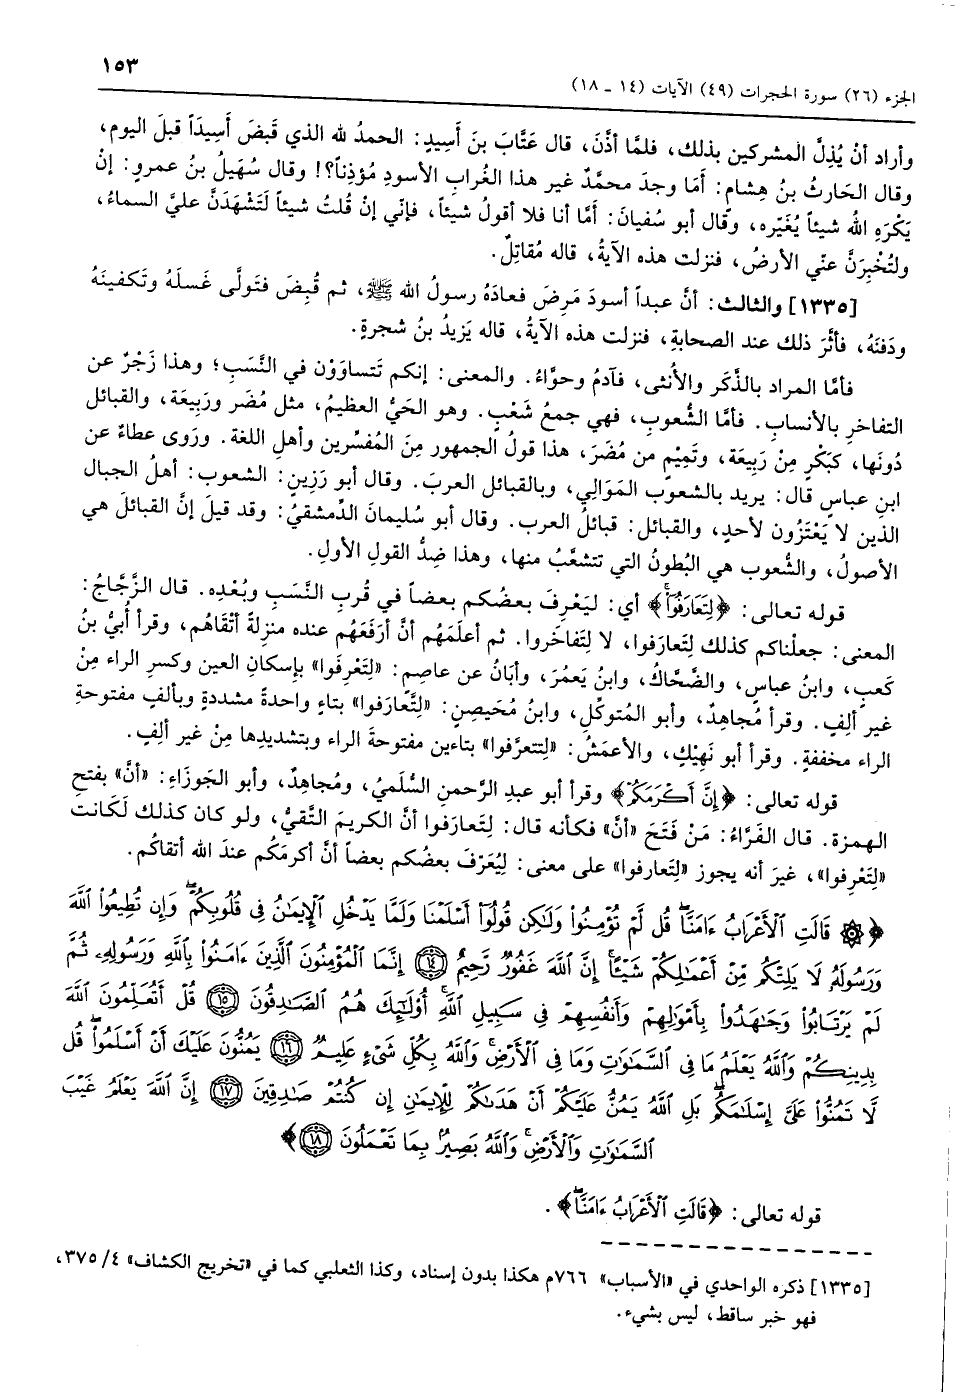 ١٥٣
الجزء (٢٦) سورة الحجرات (٤٩) الآيات (١٤ - ١٨)
وأراد أنْ يُذِلَّ المشركين بذلك، فلمَّا أذَّنَ، قال عَتَّابُ بنُ أَسِيدٍ: الحمدُ لله الذي قَبضَ أَسِيدَاً قبلَ اليوم،
وقال الحَارثُ بنُ هِشام: أَمَا وجدَ محمَّدٌ غير هذا الغُراب الأسودِ مُؤذِناً؟! وقال سُهَيلُ بنُ عمروٍ: إنْ
يَكْرَهِ اللهُ شيئاً يُغَيّره، وقال أبو سُفيانَ: أَمَّا أنا فلا أقولُ شيئاً، فإنّي إنْ قُلتُ شيئاً لَتَشْهَدَنَّ عليَّ السماءُ،
ولتُخْبِرَنَّ عنّي الأرضُ، فنزلت هذه الآيةُ، قاله مُقاتِلٌ.
[١٣٣٥] والثالث: أنَّ عبداً أسودَ مَرِضَ فعادَهُ رسولُ الله ﷺ، ثم قُبِضَ فتَولَّى غَسلَهُ وتَكفينَهُ
ودَفنَهُ، فأثَّرَ ذلك عند الصحابةِ، فنزلت هذه الآيةُ، قاله يَزيدُ بنُ شجرةٍ.
فأمَّا المراد بالذَّكَر والأُنثى، فآدمُ وحوَّاءُ. والمعنى: إنكم تَتساوَوْن في النَّسَبِ؛ وهذا زَجْرٌ عن
التفاخرِ بالأنسابِ. فأمَّا الشُّعوب، فهي جمعُ شَعْبٍ. وهو الحَيُّ العظيمُ، مثل مُضَر ورَبِيعَة، والقبائل
دُونَها، كبَكْرٍ مِنْ رَبِيعَة، وتَمِيْمٍ من مُضَرَ، هذا قولُ الجمهور مِنَ المُفسِّرين وأهلِ اللغة. ورَوى عطاءٌ عن
ابنِ عباسٍ قال: يريد بالشعوب المَوَالي، وبالقبائل العربَ. وقال أبو رَزِينٍ: الشعوب: أهلُ الجبال
الذين لا يَعْتَزُون لأحدٍ، والقبائل: قبائلُ العرب. وقال أبو سُليمانَ الدِّمشقيُّ: وقد قيلَ إنَّ القبائلَ هي
الأصولُ، والشُّعوب هي البُطونُ التي تتشعَّبُ منها، وهذا ضِدُّ القول الأولِ.
قوله تعالى: ﴿لِتَعَارَفُوٓا۟﴾ أي: ليَعْرِفَ بعضُكم بعضاً في قُربِ النَّسَبِ وبُعْدِه. قال الزَّجَّاجُ:
المعنى: جعلْناكم كذلك لِتَعارَفوا، لا لِتَفاخَروا. ثم أعلَمَهُم أنَّ أرفَعَهُم عنده منزلةً أتْقَاهُم، وقرأ أُبيُّ بنُ
كَعبٍ، وابنُ عباسٍ، والضَّحَّاكُ، وابنُ يَعمُرَ، وأبَانُ عن عاصم: «لِتَعْرِفَوا» بإسكانِ العين وكسرِ الراء مِنْ
غير ألِفٍ. وقرأ مُجاهِدٌ، وأبو المُتوكِّلِ، وابنُ مُحَيصِنٍ: «لِتَّعَارَفوا» بتاءٍ واحدةً مشددةٍ وبألفٍ مفتوحةِ
الراء مخففةٍ. وقرأ أبو نَهِيْكٍ، والأعمَشُ: «لِتتعرَّفوا» بتاءين مفتوحةَ الراء وبتشديدِها مِنْ غير ألِفٍ.
قوله تعالى: ﴿إِنَّ أَكْرَمَكُمْ﴾ وقرأ أبو عبدِ الرَّحمنِ السُّلَميُّ، ومُجاهِدٌ، وأبو الجَوزَاءِ: «أنَّ» بفتحِ
الهمزة. قال الفَرَّاءُ: مَنْ فَتَحَ «أن» فكأنه قال: لِتَعارَفوا أنَّ الكريمَ التَّقيُّ، ولو كان كذلك لَكانت
«لِتَعْرِفوا»، غيرَ أنه يجوز «لِتَعارفوا» على معنى: لِيُعَرّفَ بعضُكم بعضاً أنَّ أكرمَكُم عندَ الله أتقاكُم.
﴿۞ قَالَتِ ٱلْأَعْرَابُ ءَامَنَّاۖ قُل لَّمْ تُؤْمِنُوا۟ وَلَٰكِن قُولُوٓا۟ أَسْلَمْنَا وَلَمَّا يَدْخُلِ ٱلْإِيمَٰنُ فِى قُلُوبِكُمْۖ وَإِن تُطِيعُوا۟ ٱللَّهَ
وَرَسُولَهُۥ لَا يَلِتْكُم مِّنْ أَعْمَٰلِكُمْ شَيْـًٔاۚ إِنَّ ٱللَّهَ غَفُورٌ رَّحِيمٌ ١٤ إِنَّمَا ٱلْمُؤْمِنُونَ ٱلَّذِينَ ءَامَنُوا۟ بِٱللَّهِ وَرَسُولِهِۦ ثُمَّ
لَمْ يَرْتَابُوا۟ وَجَٰهَدُوا۟ بِأَمْوَٰلِهِمْ وَأَنفُسِهِمْ فِى سَبِيلِ ٱللَّهِۚ أُو۟لَٰٓئِكَ هُمُ ٱلصَّٰدِقُونَ ١٥ قُلْ أَتُعَلِّمُونَ ٱللَّهَ
بِدِينِكُمْ وَٱللَّهُ يَعْلَمُ مَا فِى ٱلسَّمَٰوَٰتِ وَمَا فِى ٱلْأَرْضِۚ وَٱللَّهُ بِكُلِّ شَىْءٍ عَلِيمٌ ١٦ يَمُنُّونَ عَلَيْكَ أَنْ أَسْلَمُوا۟ۖ قُل
لَّا تَمُنُّوا۟ عَلَىَّ إِسْلَٰمَكُمۖ بَلِ ٱللَّهُ يَمُنُّ عَلَيْكُمْ أَنْ هَدَىٰكُمْ لِلْإِيمَٰنِ إِن كُنتُمْ صَٰدِقِينَ ١٧ إِنَّ ٱللَّهَ يَعْلَمُ غَيْبَ
ٱلسَّمَٰوَٰتِ وَٱلْأَرْضِۚ وَٱللَّهُ بَصِيرٌۢ بِمَا تَعْمَلُونَ ١٨﴾
قوله تعالى: ﴿قَالَتِ ٱلْأَعْرَابُ ءَامَنَّاۖ﴾.
[١٣٣٥] ذكره الواحدي في «الأسباب» ٧٦٦م هكذا بدون إسناد، وكذا الثعلبي كما في «تخريج الكشاف» ٤/ ٣٧٥،
فهو خبر ساقط، ليس بشيء.